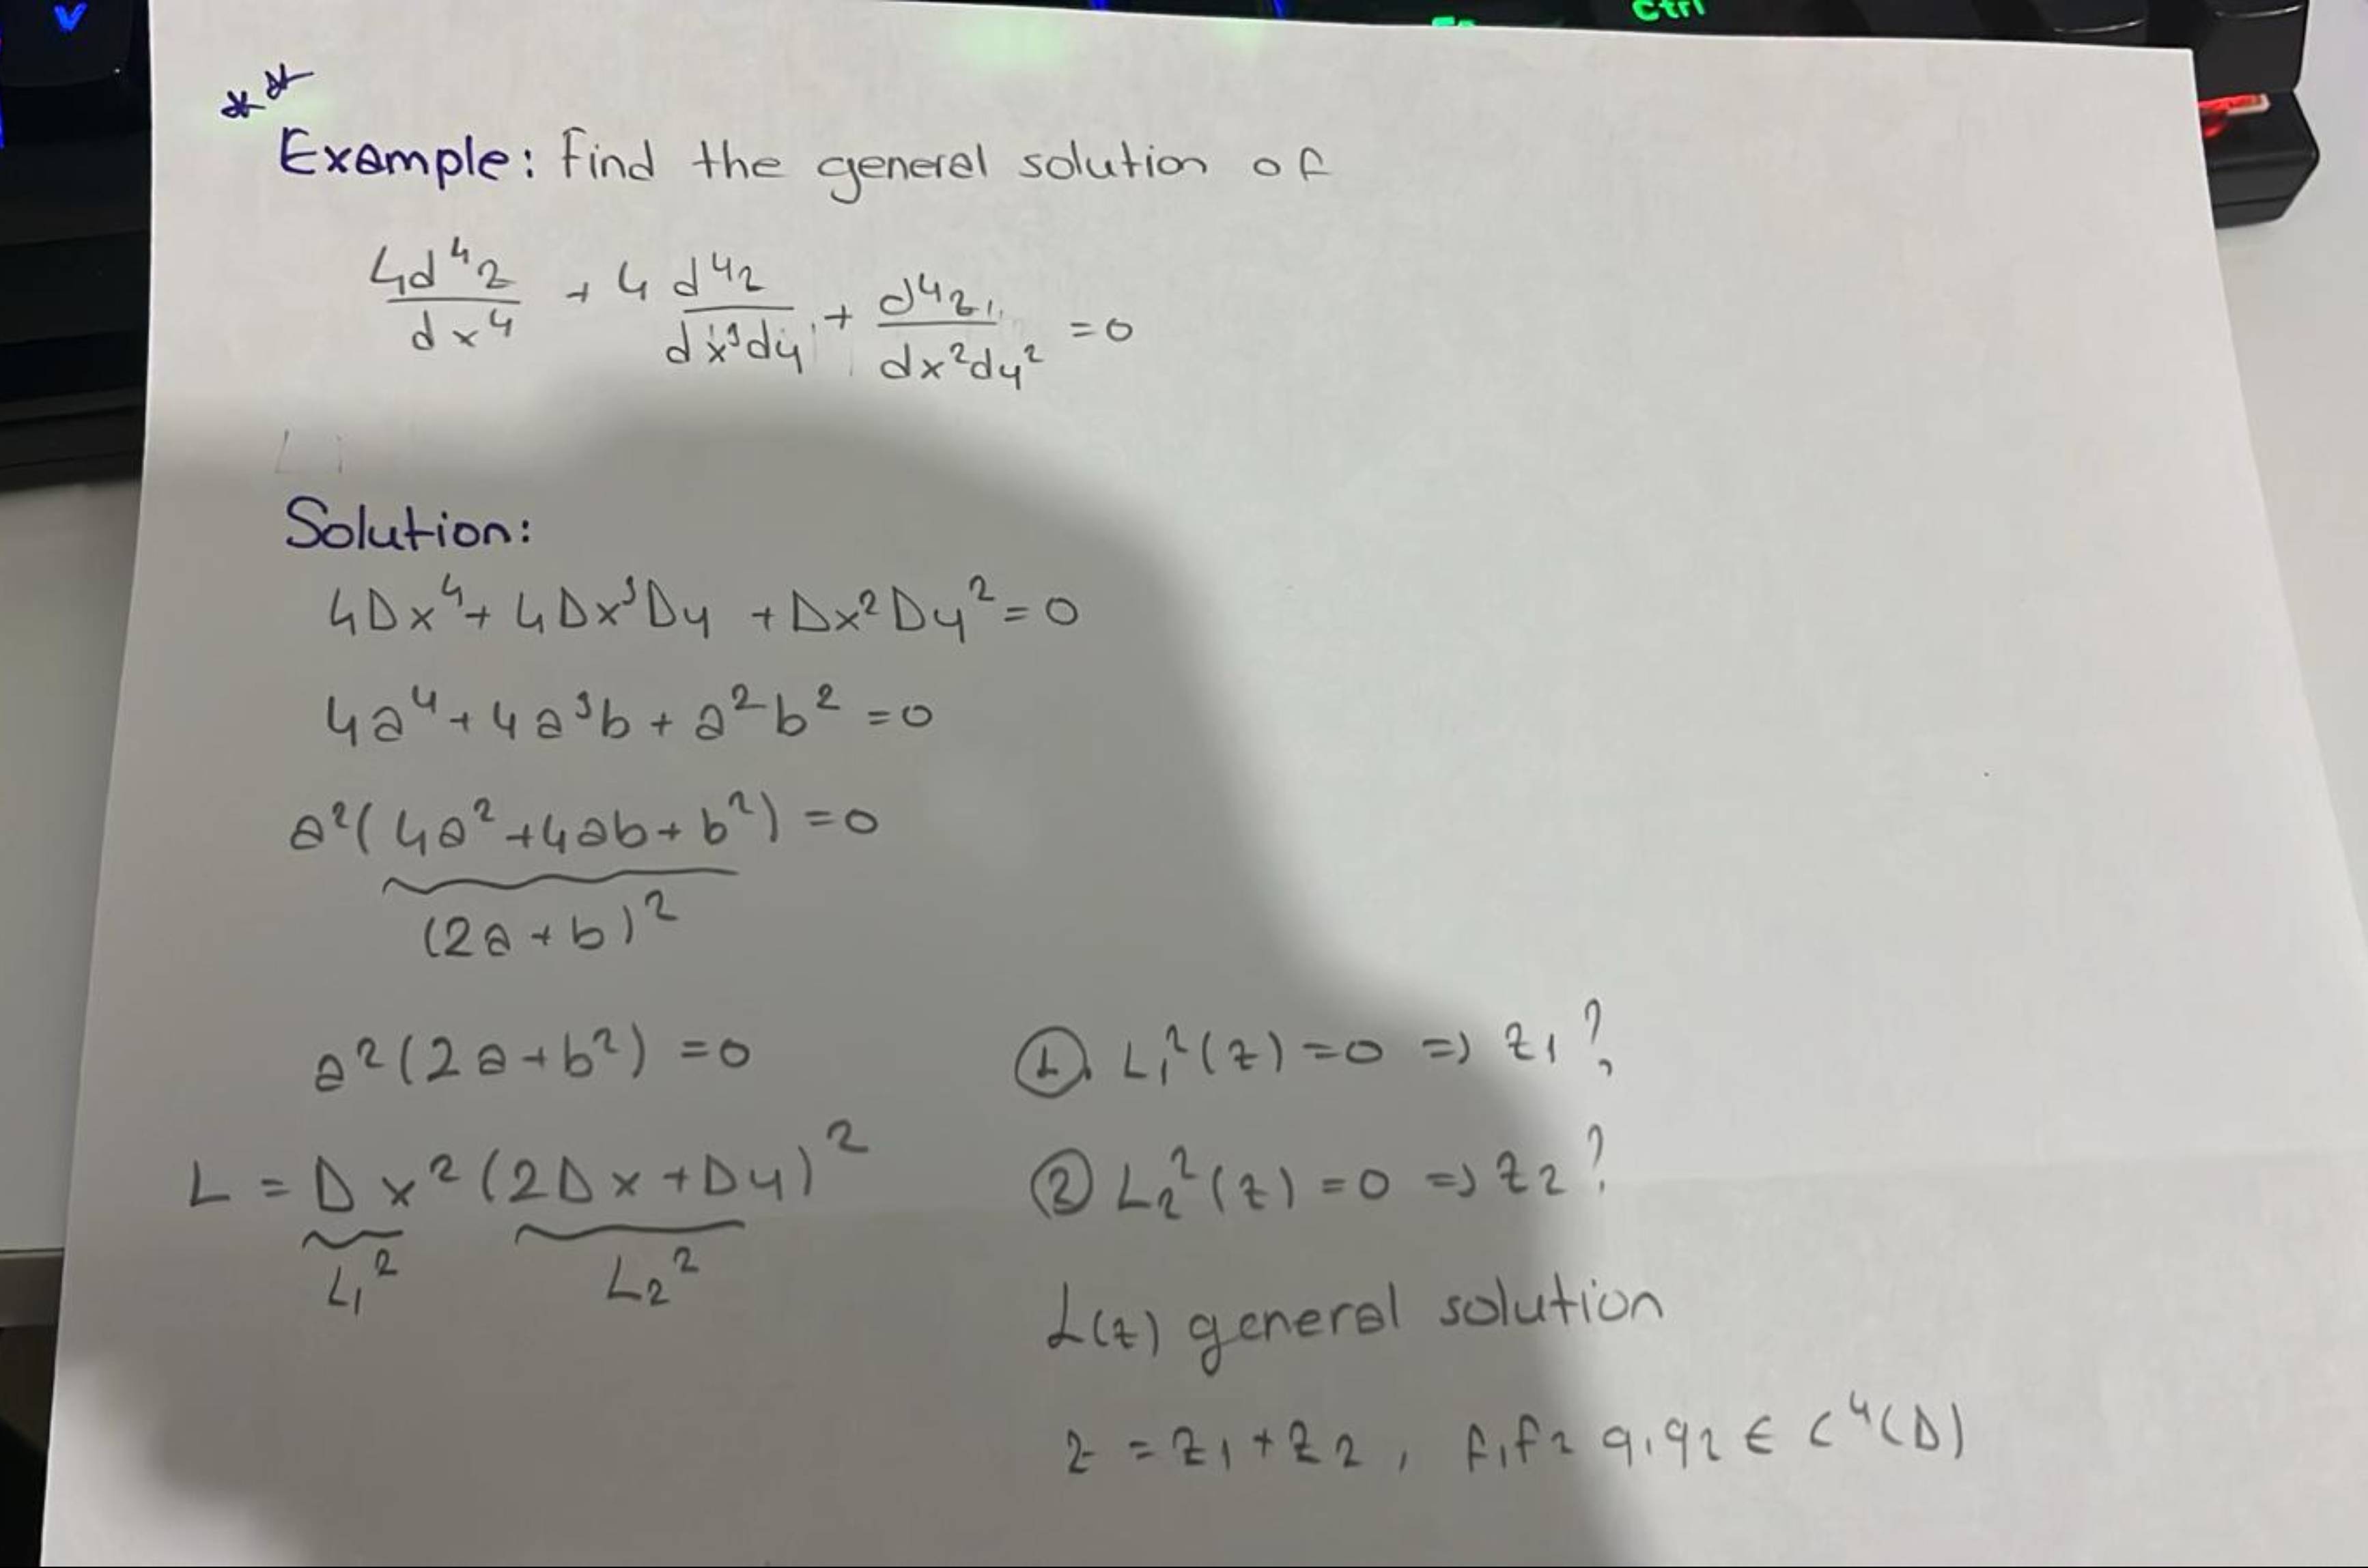 Ctrl
**
Example: Find the general solution of
4d⁴z/dx⁴ + 4 d⁴z/dx³dy + d⁴z/dx²dy² = 0
Solution:
4Dx⁴ + 4Dx³Dy + Dx²Dy² = 0
4a⁴ + 4a³b + a²b² = 0
a²(4a² + 4ab + b²) = 0
(2a + b)²
a²(2a + b²) = 0
L = Dx²(2Dx + Dy)²
L₁² L₂²
① L₁²(z) = 0 => z₁?
② L₂²(z) = 0 => z₂?
L(z) general solution
z = z₁ + z₂, f₁f₂ g₁g₂ ∈ C⁴(D)